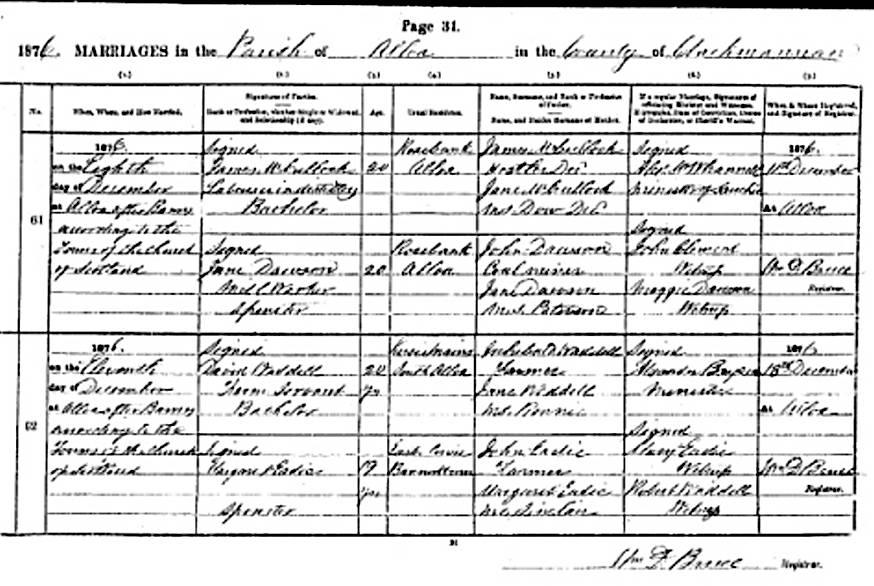 Page 31.
1876. MARRIAGES in the Parish of Alloa in the County of Clackmannan
No.
When, Where, and How Married.
Signatures of Parties.
Rank or Profession, whether Single or Widowed, and Relationship (if any).
Age.
Usual Residence.
Name, Surname, and Rank or Profession of Father.
Name, and Maiden Surname of Mother.
If a regular Marriage, Signatures of officiating Minister and Witnesses.
When & Where Registered, and Signature of Registrar.
61
1876.
on the Eighth
day of December
at Alloa after Banns
according to the
Forms of the Church
of Scotland
Signed
James McCullock
Labourer in distillery
Bachelor
Signed
Jane Dawson
Mill Worker
Spinster
20
20
Rosebank
Alloa
Rosebank
Alloa
James McCullock
Jane McCullock
M.S. Dow Dec
John Dawson
Coal miner
Jane Dawson
M.S. Paterson
Signed
Minister of
Signed
John Clement
Witness
Maggie Dawson
Witness
1876.
11th December
At Alloa
Wm F Bruce
Registrar.
62
1876.
on the Eleventh
day of December
at Alloa after Banns
according to the
Forms of the Church
of Scotland
Signed
David Waddell
Farm Servant
Bachelor
Signed
Margaret Eadie
Spinster
24
yrs
19
yrs
South Alloa
Archibald Waddell
Farmer
Jane Waddell
M.S. Rennie
John Eadie
Farmer
Margaret Eadie
M.S. Sinclair
Signed
Alexander Bryson
Minister
Signed
Mary Eadie
Witness
Robert Waddell
Witness
1876.
18th December
At Alloa
Wm F Bruce
Registrar.
Wm F. Bruce Registrar.